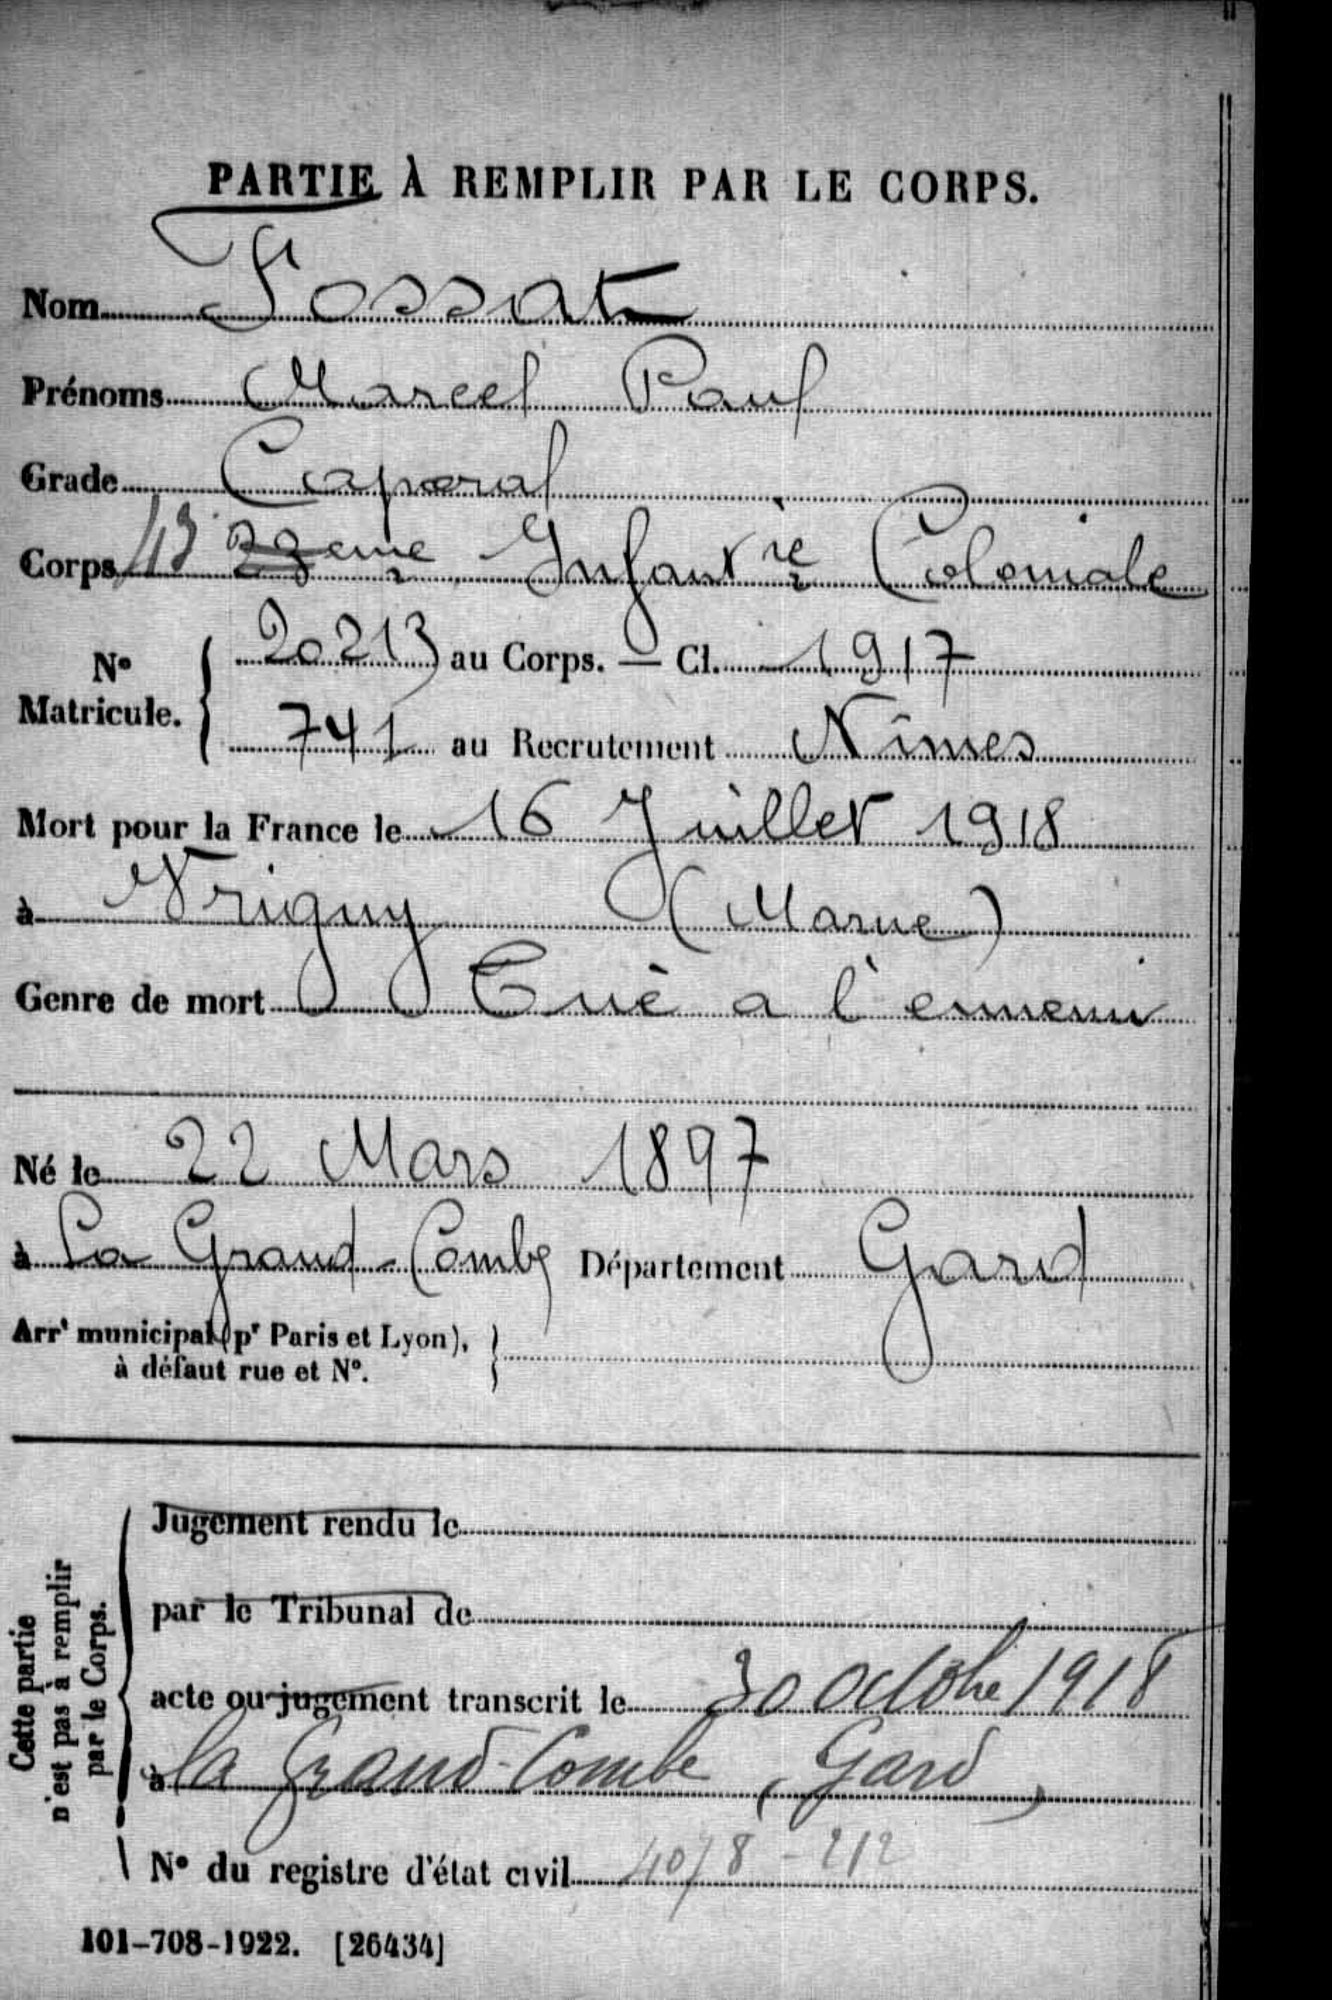 PARTIE À REMPLIR PAR LE CORPS.
Nom Fossat
Prénoms Marcel Paul
Grade Caporal
Corps 43 23eme Infantrie Coloniale
N° Matricule. { 20213 au Corps. — Cl. 1917
741 au Recrutement Nîmes
Mort pour la France le 16 Juillet 1918
à Vrigny (Marne)
Genre de mort Tué a l'ennemi
Né le 22 Mars 1897
à La Grand-Combe Département Gard
Arrt municipal (pr Paris et Lyon),
à défaut rue et N°.
Cette partie n'est pas à remplir par le Corps.
Jugement rendu le
par le Tribunal de
acte ou jugement transcrit le 30 octobre 1918
à la Grand-Combe (Gard)
N° du registre d'état civil 4078-212
101-708-1922. [26434]